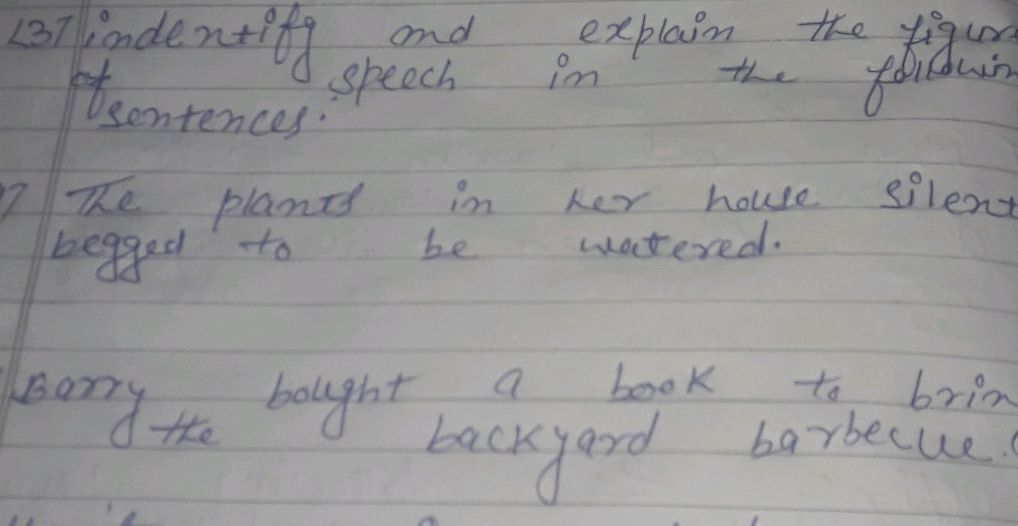 (3) indentify and explain the figur
of speech in the followin
sentences.
The plants in her house silent
begged to be watered.
Barry bought a book to brin
the backyard barbecue.